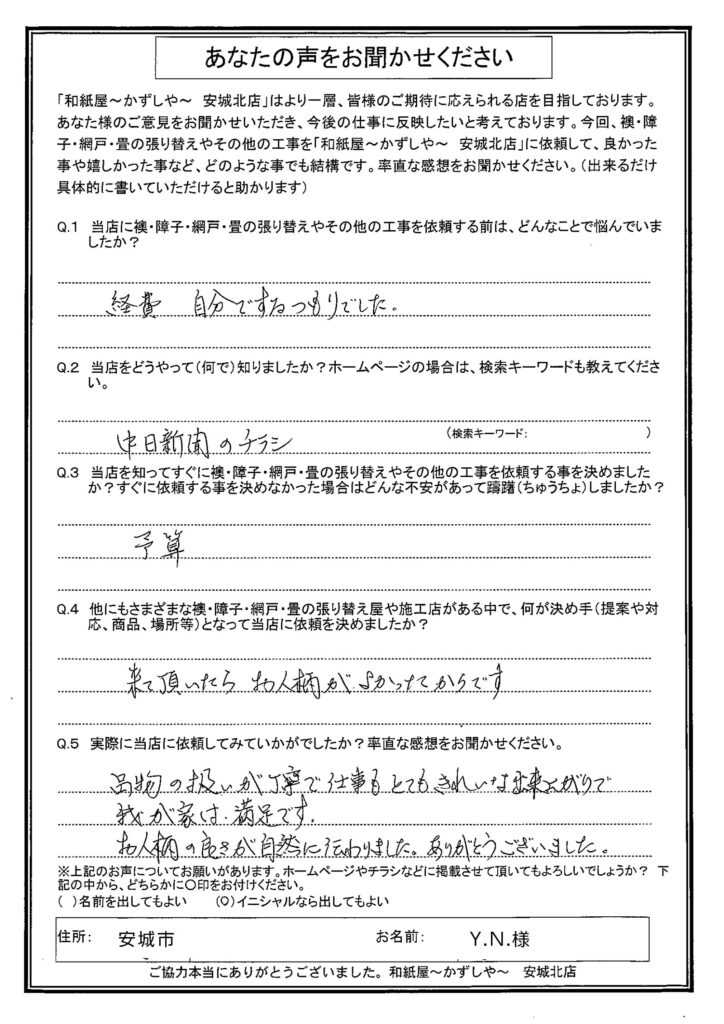 あなたの声をお聞かせください
「和紙屋～かずしや～　安城北店」はより一層、皆様のご期待に応えられる店を目指しております。
あなた様のご意見をお聞かせいただき、今後の仕事に反映したいと考えております。今回、襖・障
子・網戸・畳の張り替えやその他の工事を「和紙屋～かずしや～　安城北店」に依頼して、良かった
事や嬉しかった事など、どのような事でも結構です。率直な感想をお聞かせください。（出来るだけ
具体的に書いていただけると助かります）
Q.1　当店に襖・障子・網戸・畳の張り替えやその他の工事を依頼する前は、どんなことで悩んでいま
したか？
経費　自分でするつもりでした。
Q.2　当店をどうやって（何で）知りましたか？ホームページの場合は、検索キーワードも教えてくださ
い。
中日新聞のチラシ　（検索キーワード:　）
Q.3　当店を知ってすぐに襖・障子・網戸・畳の張り替えやその他の工事を依頼する事を決めました
か？すぐに依頼する事を決めなかった場合はどんな不安があって躊躇（ちゅうちょ）しましたか？
予算
Q.4　他にもさまざまな襖・障子・網戸・畳の張り替え屋や施工店がある中で、何が決め手（提案や対
応、商品、場所等）となって当店に依頼を決めましたか？
来て頂いたら　お人柄がよかったからです
Q.5　実際に当店に依頼してみていかがでしたか？率直な感想をお聞かせください。
品物の扱いが丁寧で仕事もとてもきれいな出来上がりで
我が家は満足です.
お人柄の良さが自然に伝わりました。ありがとうございました。
※上記のお声についてお願いがあります。ホームページやチラシなどに掲載させて頂いてもよろしいでしょうか？　下
記の中から、どちらかに〇印をお付けください。
（　）名前を出してもよい　（〇）イニシャルなら出してもよい
住所:　安城市　お名前:　Y.N.様
ご協力本当にありがとうございました。和紙屋～かずしや～　安城北店